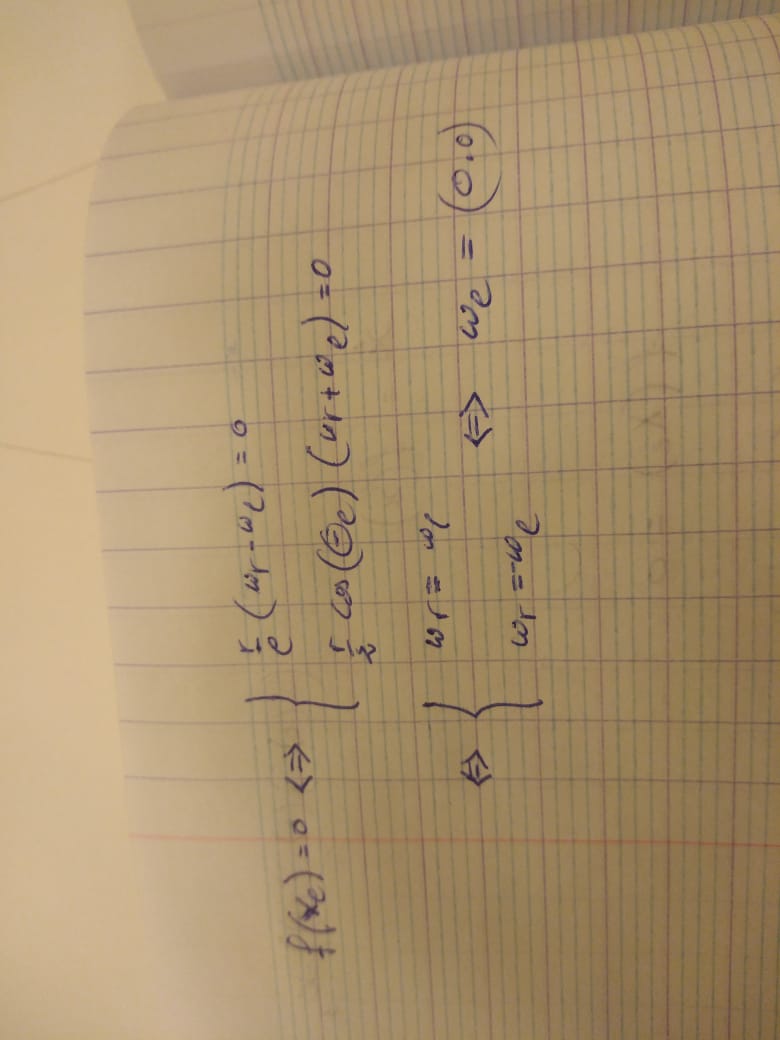 f(x_e) = 0 ⇔ { r/e (ω_r - ω_l) = 0
r/2 cos(θ_e) (ω_r + ω_l) = 0
⇔ { ω_r = ω_l
ω_r = -ω_l ⇔ ω_e = (0.0)